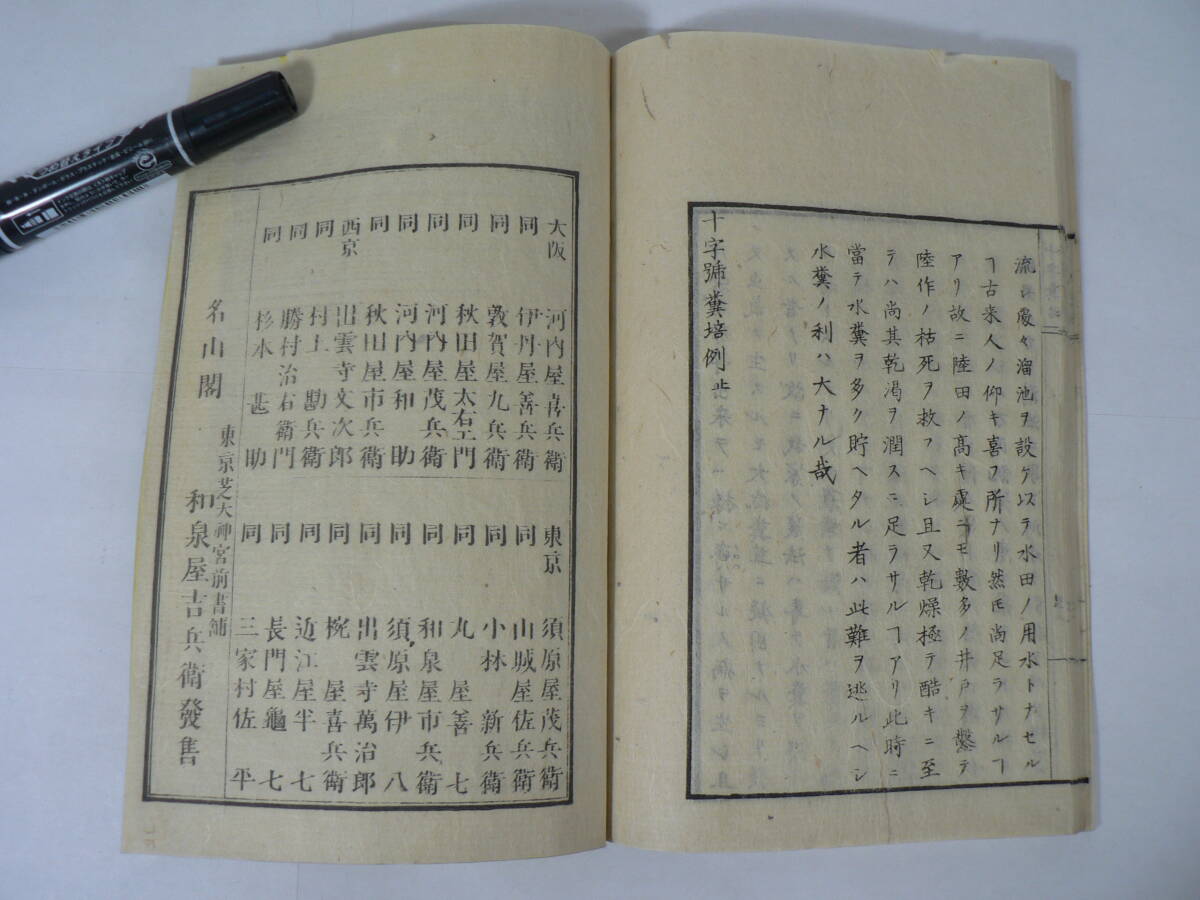 流レ處々溜池ヲ設ケ以テ水田ノ用水トナセル
ヿ古来人ノ仰キ喜フ所ナリ然𪜈尚足ラサルヿ
アリ故ニ陸田ノ高キ處ニモ數多ノ井戸ヲ鑿テ
陸作ノ枯死ヲ救フヘシ且又乾燥極テ酷キニ至
テハ尚其乾渇ヲ潤スニ足ラサルヿアリ此時ニ
當テ水糞ヲ多ク貯ヘタル者ハ此難ヲ逃ルヘシ
水糞ノ利ハ大ナル哉
十字號糞培例
大阪 河内屋喜兵衛
同 伊丹屋善兵衛
同 敦賀屋九兵衛
同 秋田屋太右エ門
同 河内屋茂兵衛
同 河内屋和助
同 秋田屋市兵衛
西京 出雲寺文次郎
同 村上勘兵衛
同 勝村治右衛門
同 杉本甚助
東京 須原屋茂兵衛
同 山城屋佐兵衛
同 小林新兵衛
同 丸屋善七
同 和泉屋市兵衛
同 須原屋伊八
同 出雲寺萬治郎
同 椀屋喜兵衛
同 近江屋半七
同 長門屋龜七
同 三家村佐平
東京芝大神宮前書舗
名山閣 和泉屋吉兵衛發售
つめ替えタイプ